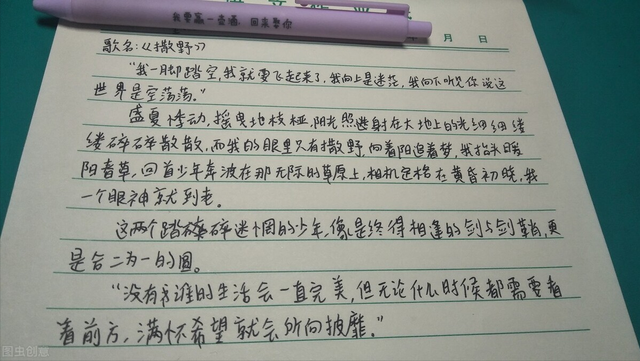 月 日
歌名:《撒野》
“我一脚踏空,我就要飞起来了,我向上是迷茫,我向下听见你说这
世界是空荡荡。”
盛夏悸动,摇曳地枝桠,阳光照射在大地上的光细细缕
缕碎碎散散,而我的眼里只有撒野,向着阳追着梦,我抬头暖
阳春草,回首少年奔波在那无际的草原上,相机在黄昏初晓,我
一个眼神就到老。
这两个踏碎迷惘的少年,像是终得相逢的剑与剑鞘,更
是合二为一的圆。
“没有谁的生活会一直完美,但无论什么时候都需要看
着前方,满怀希望就会所向披靡。”
图虫创意